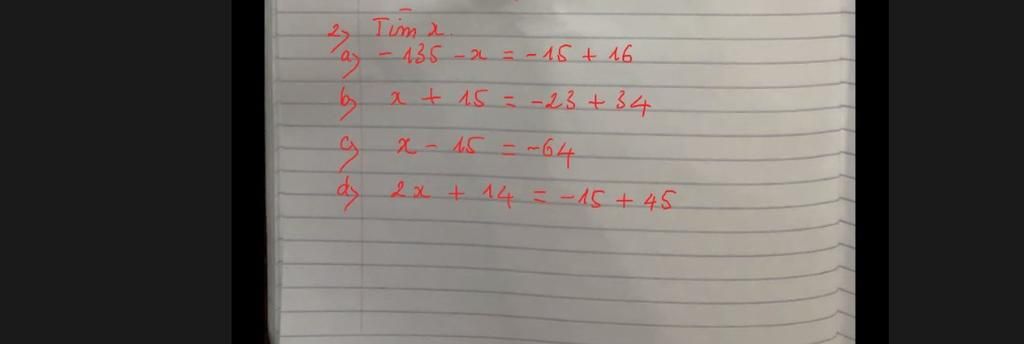 2) Tìm x.
a) - 135 - x = - 15 + 16
b) x + 15 = - 23 + 34
c) x - 15 = - 64
d) 2x + 14 = - 15 + 45